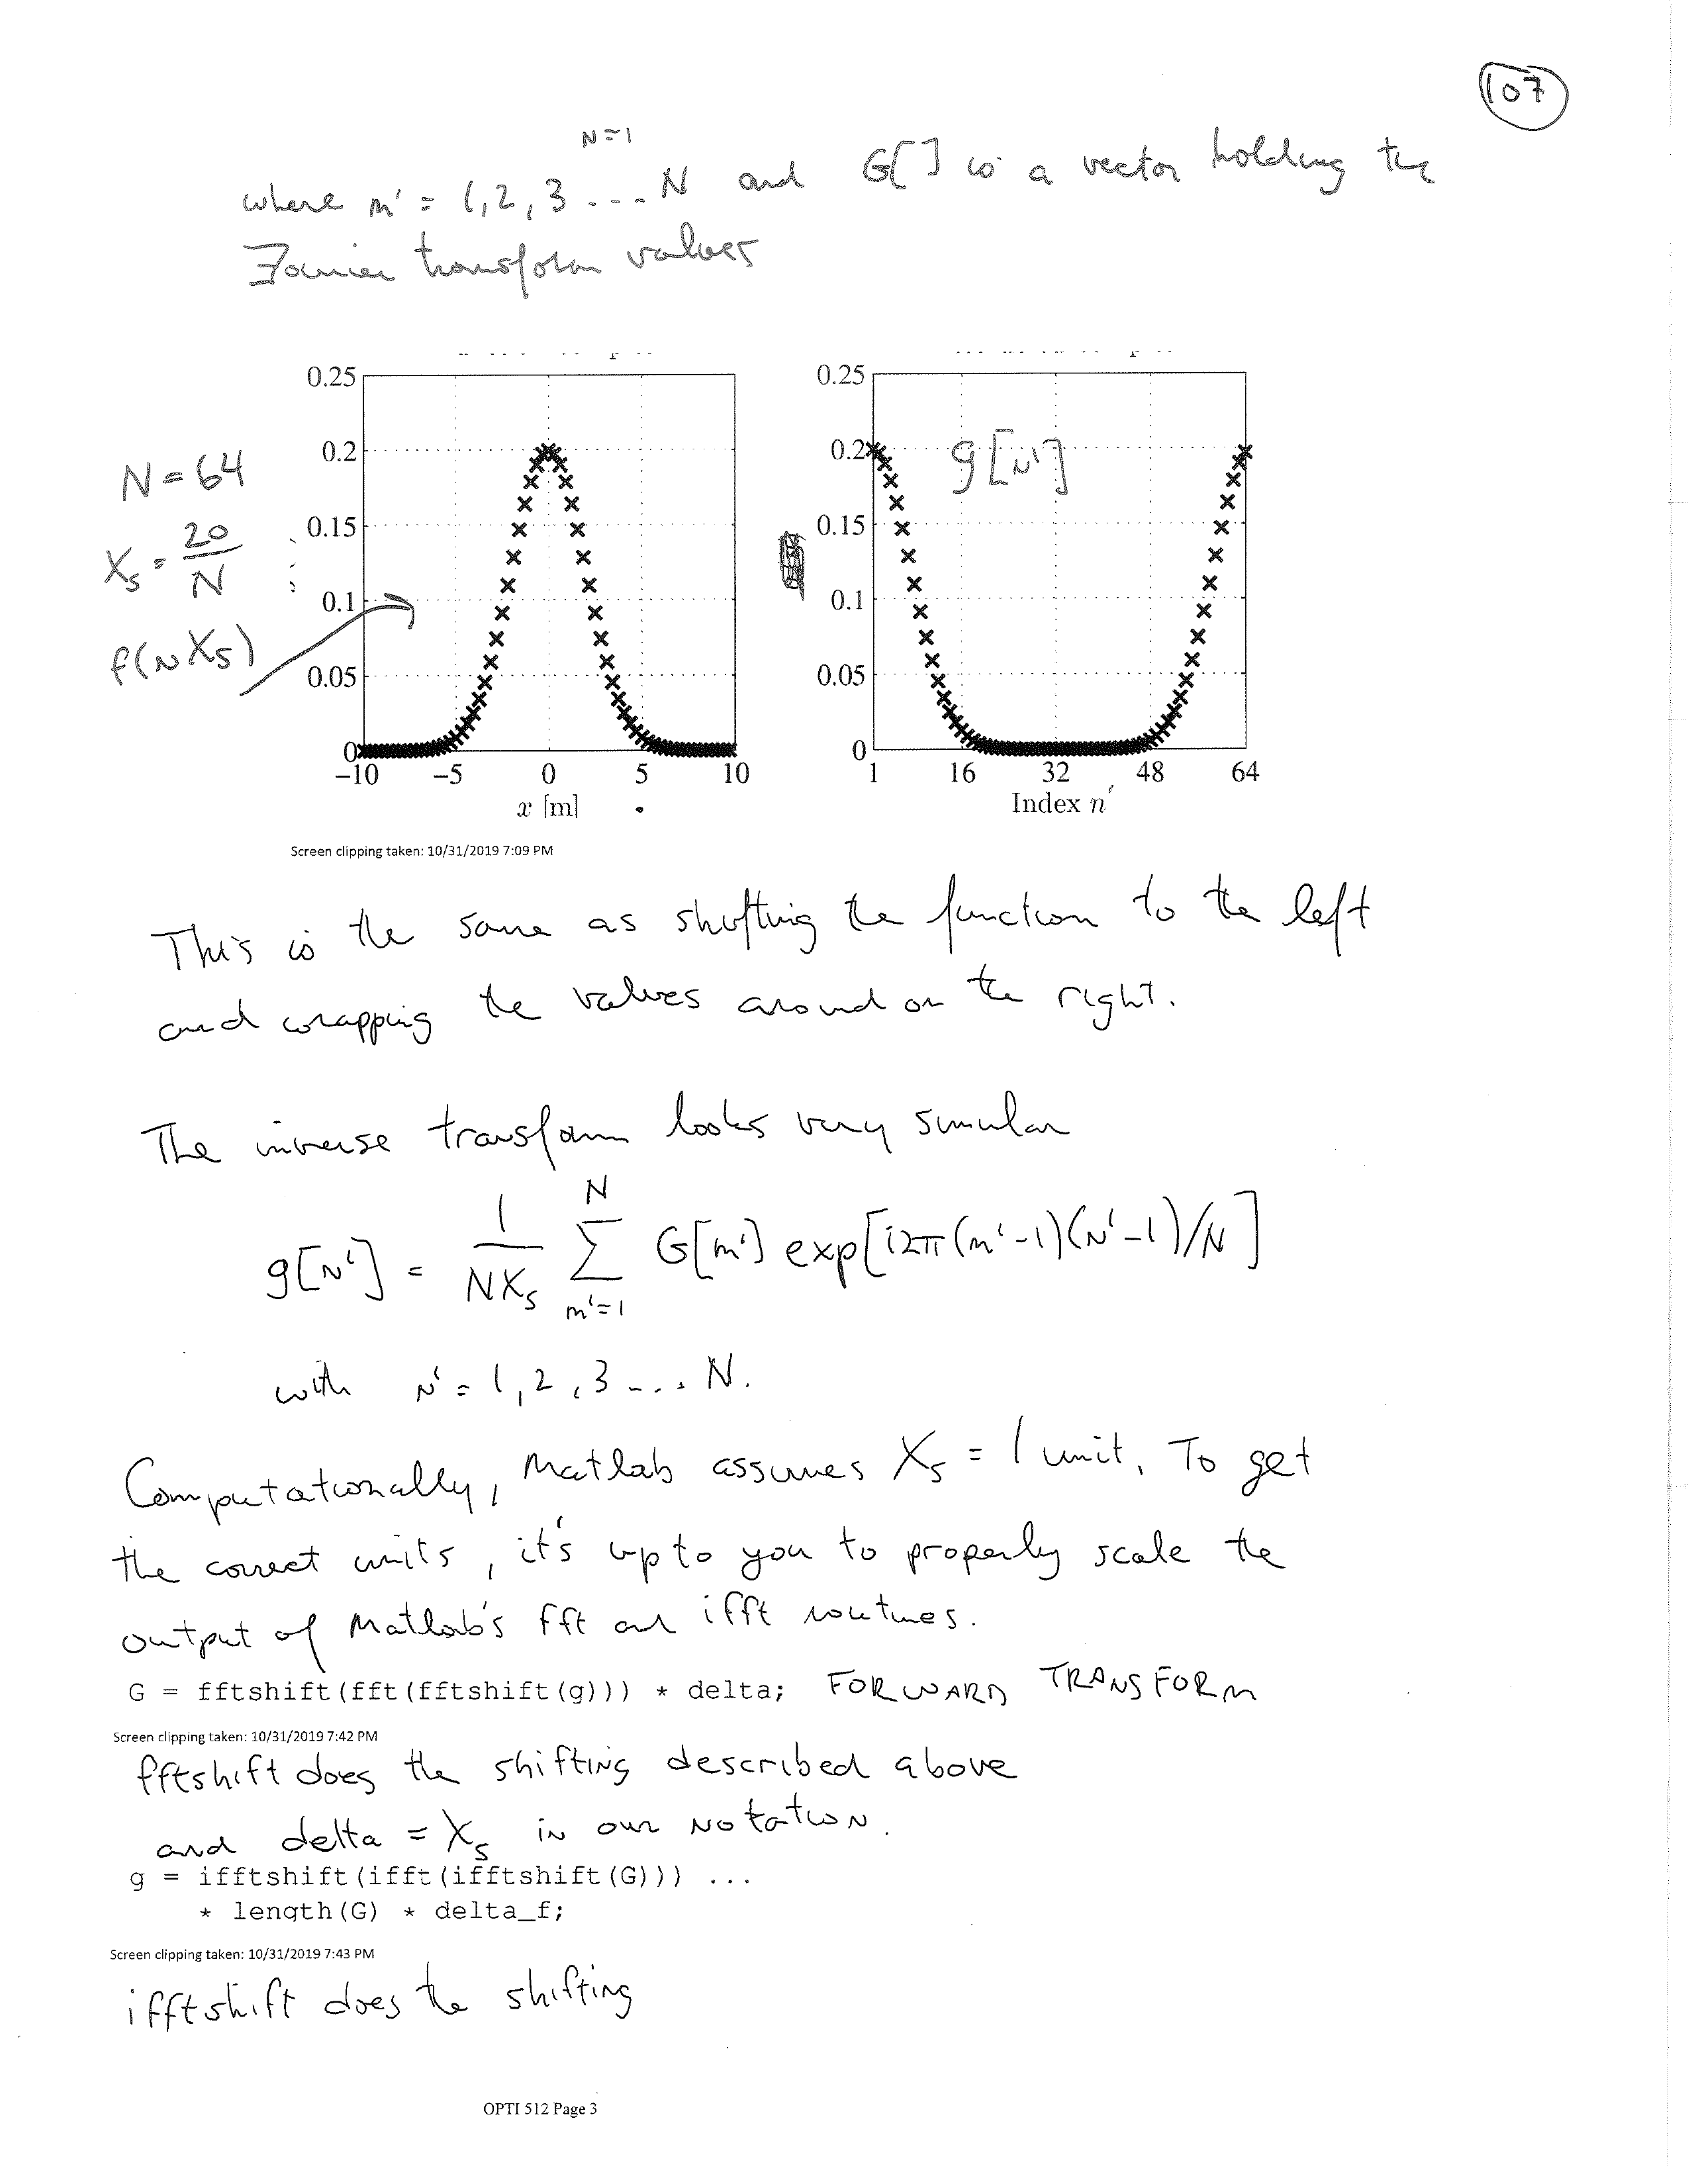 107
N=1
where m' = 1, 2, 3 ... N and G[ ] is a vector holding the
Fourier transform values
N = 64
Xs = 20/N
f(NXs)
0.25
0.2
0.15
0.1
0.05
0
−10 −5 0 5 10
x [m]
0.25
0.2
0.15
0.1
0.05
0
g[N']
1 16 32 48 64
Index n'
Screen clipping taken: 10/31/2019 7:09 PM
This is the same as shifting the function to the left
and wrapping the values around on the right.
The inverse transform looks very similar
g[N'] = 1/(NXs) Σ_{m'=1}^{N} G[m'] exp[i2π(m'-1)(N'-1)/N]
with N' = 1, 2, 3 ... N.
Computationally, Matlab assumes Xs = 1 unit. To get
the correct units, it's up to you to properly scale the
output of Matlab's fft an ifft routines.
G = fftshift(fft(fftshift(g))) * delta; FORWARD TRANSFORM
Screen clipping taken: 10/31/2019 7:42 PM
fftshift does the shifting described above
and delta = Xs in our notation.
g = ifftshift(ifft(ifftshift(G))) ...
* length(G) * delta_f;
Screen clipping taken: 10/31/2019 7:43 PM
ifftshift does the shifting
OPTI 512 Page 3